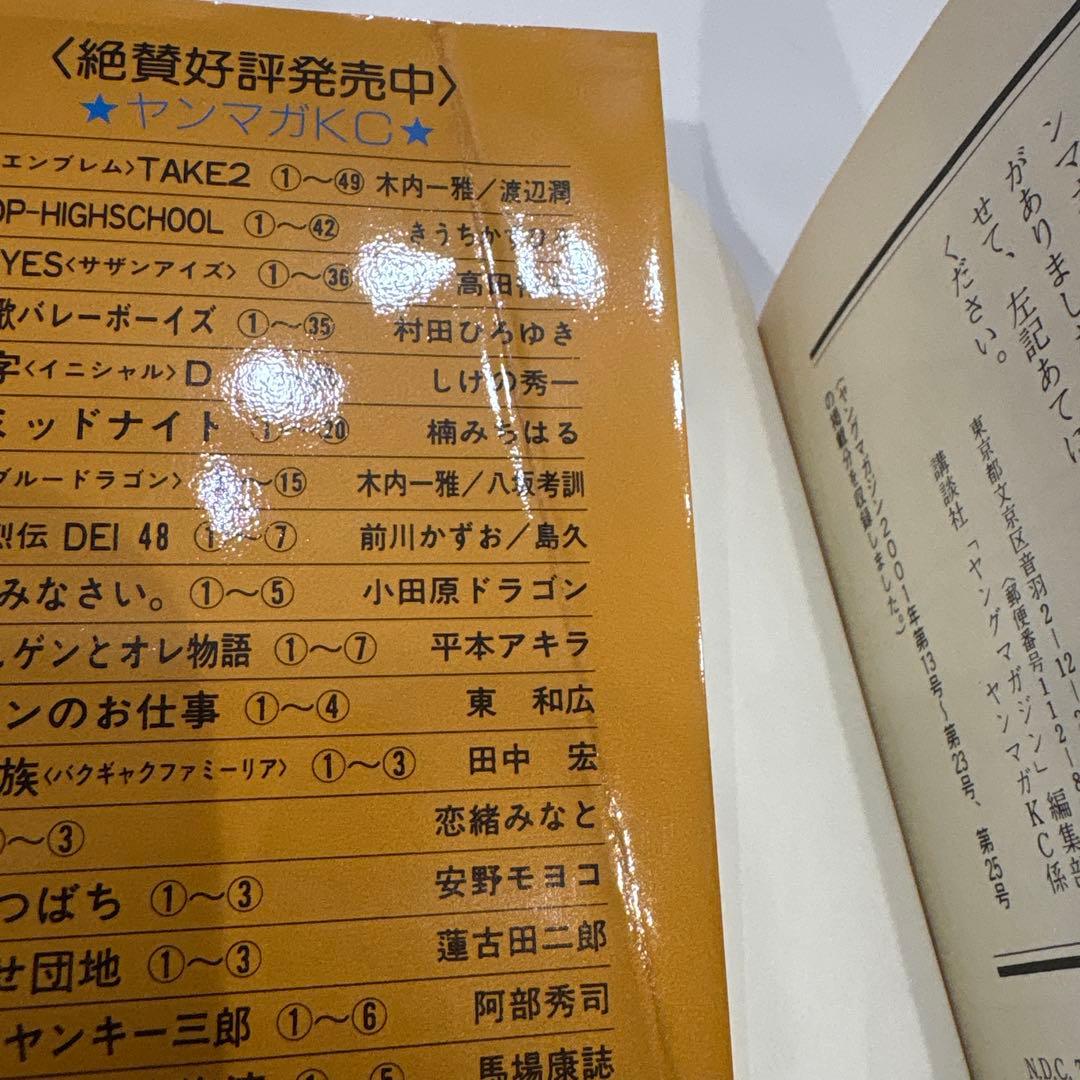 〈絶賛好評発売中〉
★ヤンマガKC★
エンブレム〉TAKE2 ①〜㊾ 木内一雅／渡辺潤
OP-HIGHSCHOOL ①〜㊷ きうちかずひろ
YES〈サザンアイズ〉 ①〜㊱ 高田
歌バレーボーイズ ①〜㉟ 村田ひろゆき
字〈イニシャル〉D しげの秀一
ミッドナイト ①〜⑳ 楠みちはる
ブルードラゴン〉 ①〜⑮ 木内一雅／八坂考訓
烈伝 DEI 48 ①〜⑦ 前川かずお／島久
みなさい。 ①〜⑤ 小田原ドラゴン
ゲンとオレ物語 ①〜⑦ 平本アキラ
ンのお仕事 ①〜④ 東 和広
族〈バクギャクファミーリア〉 ①〜③ 田中 宏
〜③ 恋緒みなと
つばち ①〜③ 安野モヨコ
せ団地 ①〜③ 蓮古田二郎
ヤンキー三郎 ①〜⑥ 阿部秀司
①〜⑤ 馬場康誌
ンマガ
がありましたら
せて、左記あてに
ください。
東京都文京区音羽2-12-2
〈郵便番号112-8
講談社「ヤングマガジン」編集部
ヤンマガKC係
（ヤングマガジン2001年第13号〜第23号、第25号
の掲載分を収録しました。）
N.D.C. 7